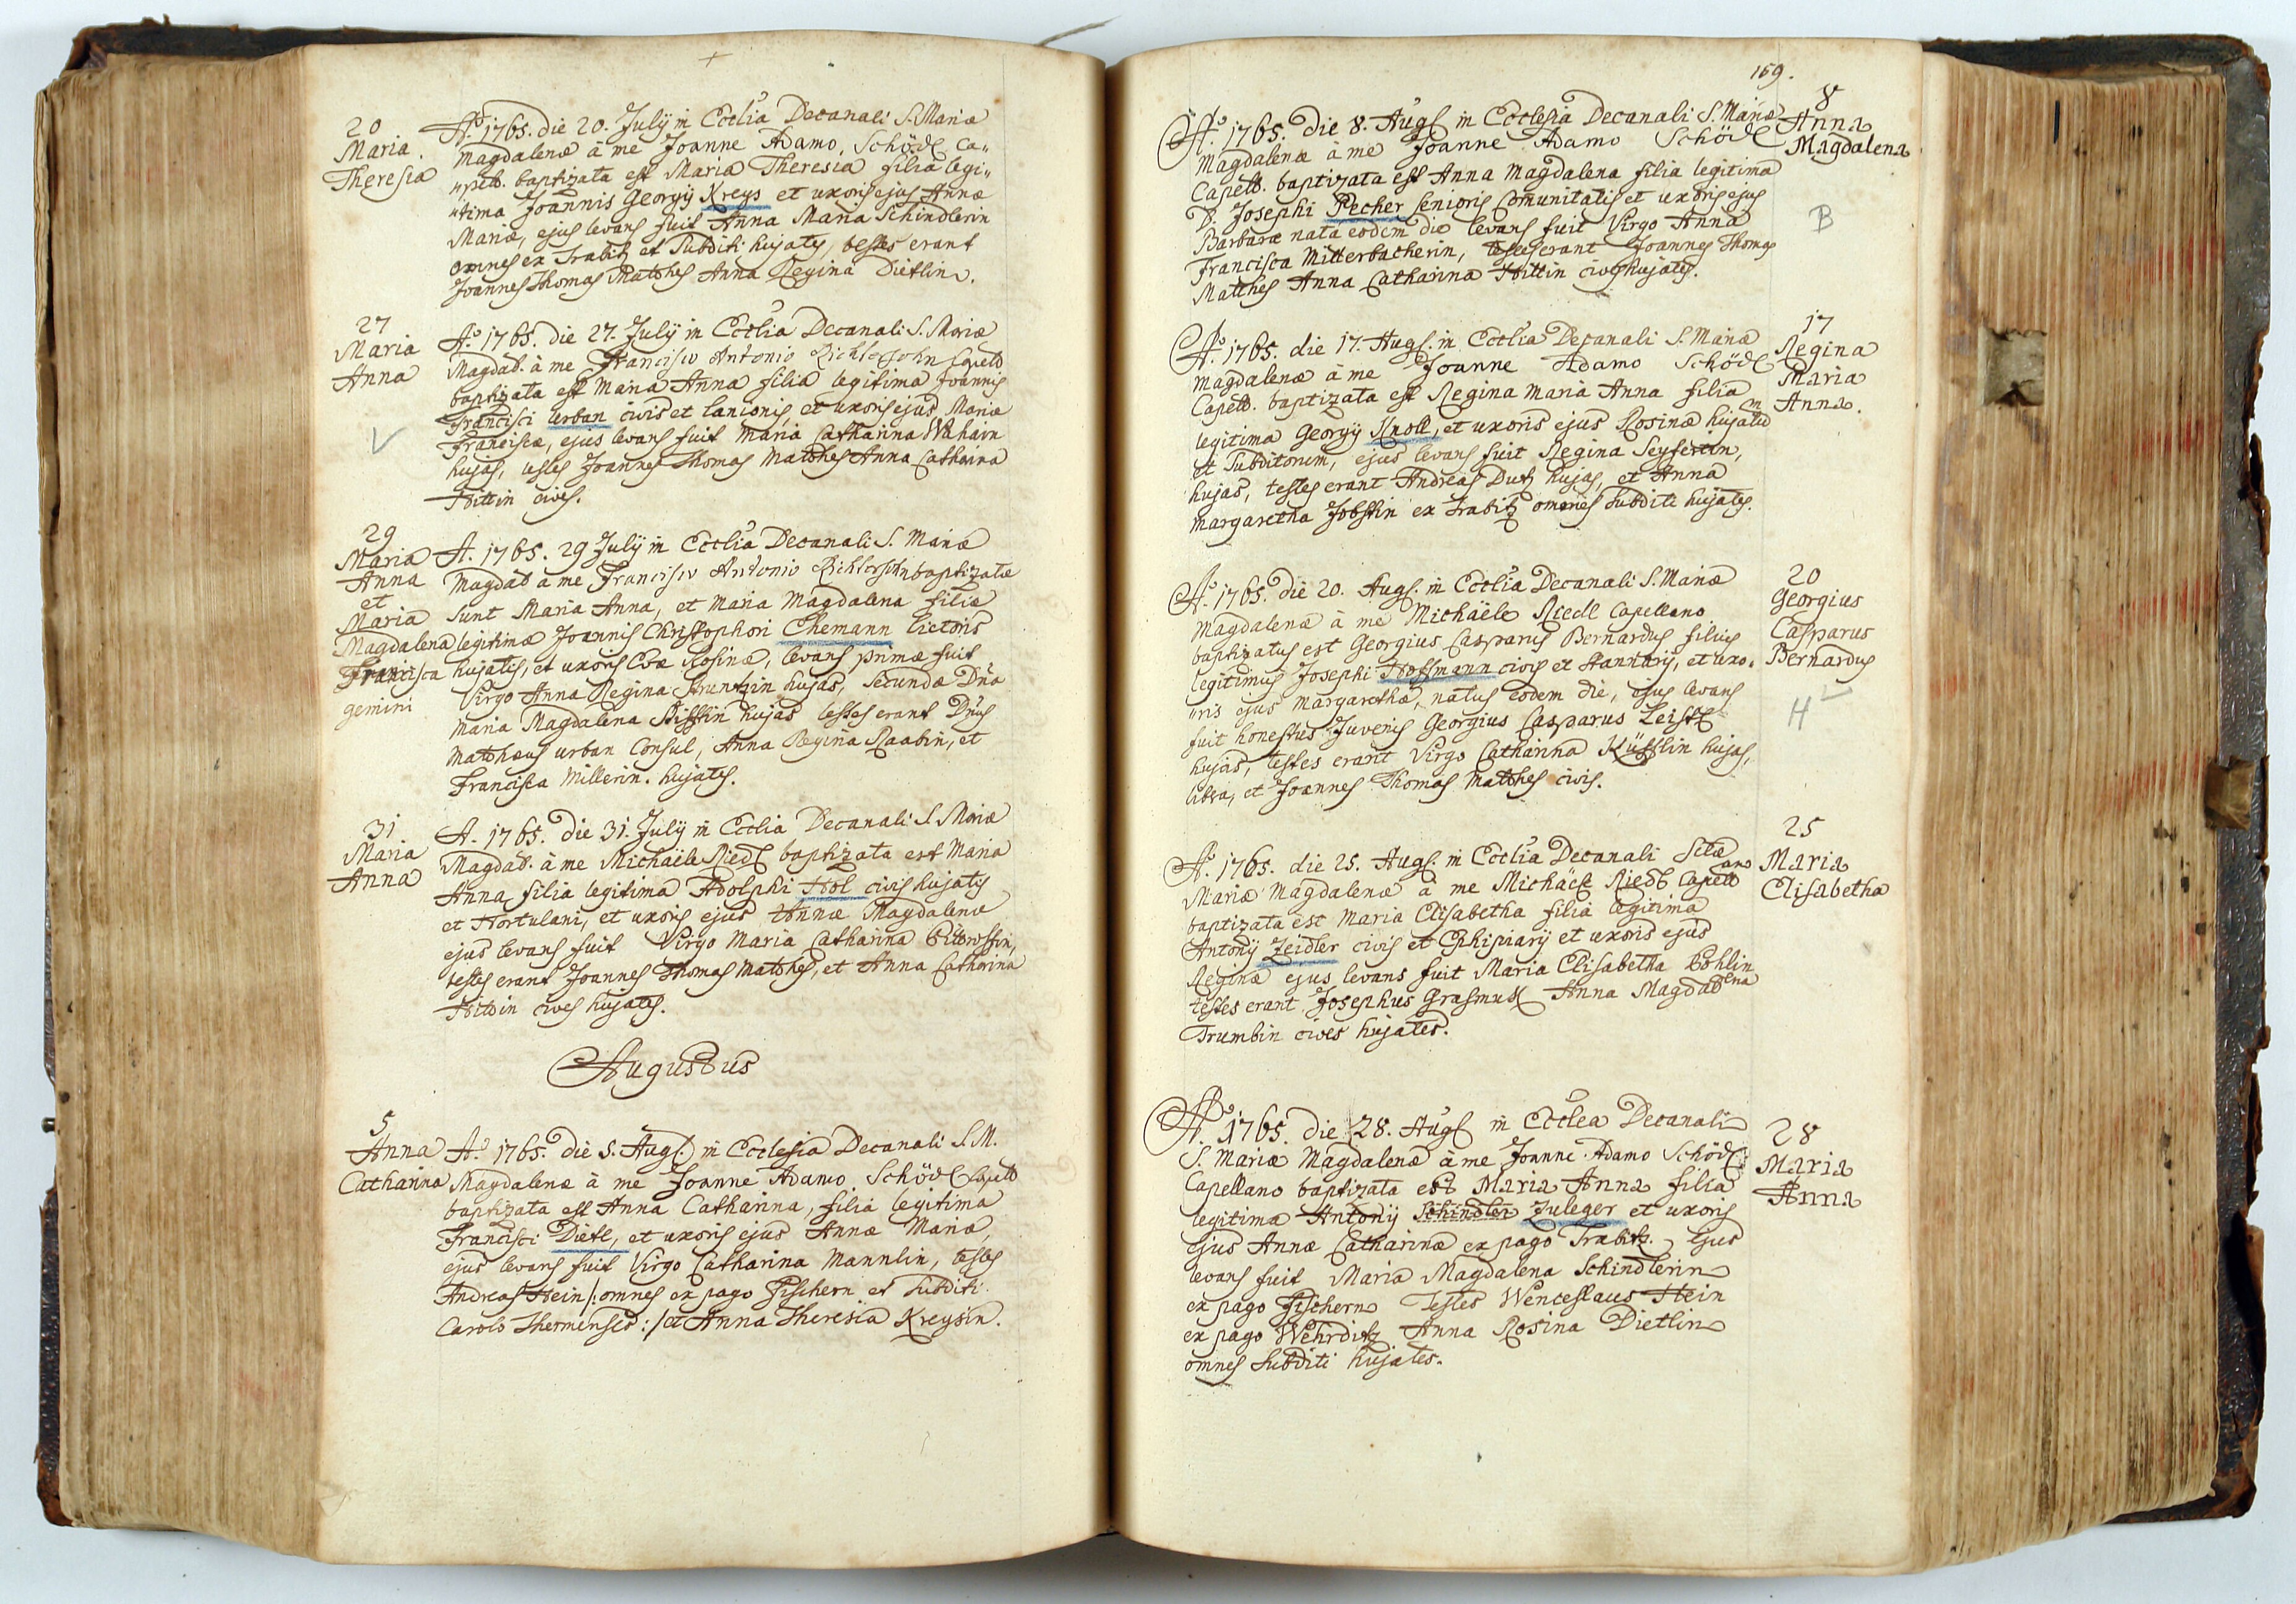 20
Maria
Theresia
Aº 1765. die 20. July in Ecclia Decanali S. Mariæ
Magdalenæ â me Joanne Adamo Schödl Ca„
„pell. baptizata est Maria Theresia filia legi„
„tima Joannis Georgÿ Kreys et uxoris ejus Annæ
Mariæ, ejus levans fuit Anna Maria Schindlerin
omnes ex Trabitz et Subditi hujates, testes erant
Joannes Thomas Matthes Anna Regina Dietlin.
27
Maria
Anna
Aº 1765. die 27. July in Ecclia Decanali S. Mariæ
Magdal. â me Francisco Antonio Richtersohn Capell
baptizata est Maria Anna filia legitima Joannis
Francisci Urban civis et lanionis, et uxoris ejus Mariæ
Franciscæ, ejus levans fuit Maria Catharina
hujas, testes Joannes Thomas Matthes Anna Catharina
Hittin cives.
29
Maria
Anna
et
Maria
Magdalena
Francisca
gemini
A. 1765. 29 July in Ecclia Decanali S. Mariæ
Magdal â me Francisco Antonio Richtersohn baptizatæ
sunt Maria Anna, et Maria Magdalena filiæ
legitimæ Joannis Christophori Ehemann lictoris
hujatis, et uxoris Evæ Rosinæ, levans primæ fuit
Virgo Anna Regina Struntzin hujas, Secundæ Dna
Maria Magdalena hujas testes erant Dnus
Mathæus Urban Consul, Anna Regina Raabin, et
Francisca Millerin. hujates.
31
Maria
Anna
A. 1765. die 31. July in Ecclia Decanali S. Mariæ
Magdal. â me Michaële Riedl baptizata est Maria
Anna, filia legitima Adolphi Höl civis hujatis
et Hortulani, et uxoris ejus Annæ Magdalenæ
ejus levans fuit Virgo Maria Catharina
testes erant Joannes Thomas Matthes, et Anna Catharina
Hittin cives hujates.
Augustus
5
Anna
Catharina
Aº 1765. die 5. Augs. in Ecclesia Decanali S. M.
Magdalenæ â me Joanne Adamo Schödl Capell
baptizata est Anna Catharina, filia legitima
Francisci Dietl, et uxoris ejus Annæ Mariæ,
ejus levans fuit Virgo Catharina Mannlin, testes
Andreas Hein /: omnes ex pago Fischern et Subditi
Carolo Thermenses :/ et Anna Theresia Kreysin.
159.
8
Anna
Magdalena
B
Aº 1765. die 8. Augs. in Ecclesia Decanali S. Mariæ
Magdalenæ â me Joanne Adamo Schödl
Capell. baptizata est Anna Magdalena filia legitima
D. Josephi Pecher Senioris Comunitatis et uxoris ejus
Barbaræ nata eodem die levans fuit Virgo Anna
Francisca Mitterbacherin, testes erant Joannes Thomas
Matthes Anna Catharina Hittin cives hujates.
17
Regina
Maria
Anna.
Aº 1765. die 17. Augs. in Ecclia Decanali S. Mariæ
Magdalenæ â me Joanne Adamo Schödl
Capell. baptizata est Regina Maria Anna filia
legitima Georgÿ Knoll, et uxoris ejus Rosinæ hujatum
et Subditorum, ejus levans fuit Regina Seyfertin,
hujas, testes erant Andreas Dutz hujas, et Anna
Margaretha Jobstin ex Trabitz omnes Subditi hujates.
20
Georgius
Casparus
Bernardus
H
Aº 1765. die 20. Augs. in Ecclia Decanali S. Mariæ
Magdalenæ â me Michäele Riedl Capellano
baptizatus est Georgius Casparus Bernardus filius
legitimus Josephi Hoffmann civis et Stannarÿ, et uxo„
„ris ejus Margarethæ, natus eodem die, ejus levans
fuit honestus Juvenis Georgius Casparus Leistl
hujas, testes erant Virgo Catharina hujas,
libra, et Joannes Thomas Matthes civis.
25
Maria
Elisabetha
Aº 1765. die 25. Augs. in Ecclia Decanali Sctæ
Mariæ Magdalenæ â me Michäele Riedl Capellano
baptizata est Maria Elisabetha filia legitima
Antony Zeidler civis et Ephipiarÿ et uxoris ejus
Reginæ ejus levans fuit Maria Elisabetha Pöhlin
testes erant Josephus Grasmuk Anna Magdalena
Trumbin cives hujates.
28
Maria
Anna
Aº 1765. die 28. Augs in Ecclea Decanali
S. Mariæ Magdalenæ â me Joanne Adamo Schödl
Capellano baptizata est Maria Anna filia
legitima Antonÿ Schindler Zuleger et uxoris
ejus Annæ Catharinæ ex pago Trabitz. Ejus
levans fuit Maria Magdalena Schindlerin
ex pago Fischern Testes Wenceslaus Hein
ex pago Wehrditz Anna Rosina Dietlin
omnes Subditi hujates.